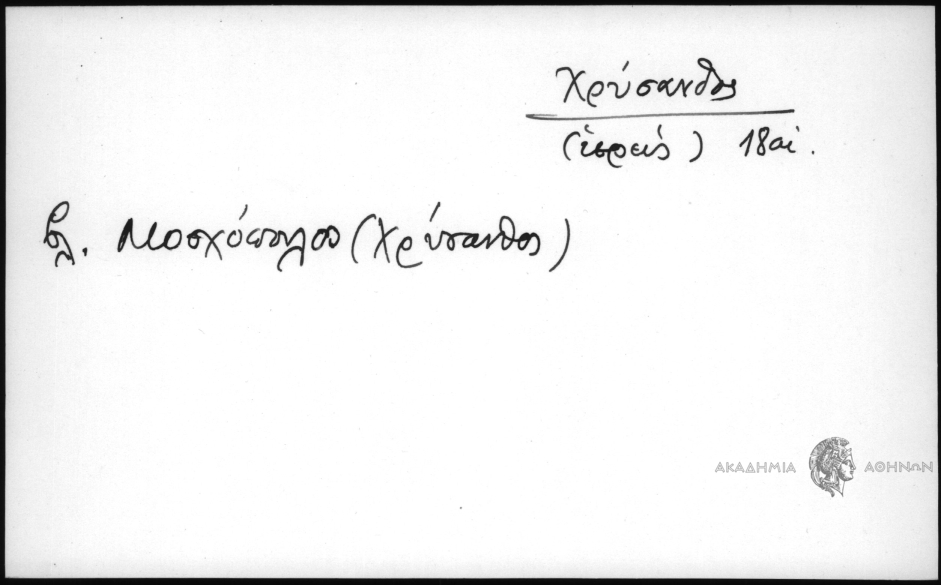 Χρύσανθος
(ἱερεύς) 18 αἰ.
βλ. Μοσχόπουλος (Χρύσανθος)
ΑΚΑΔΗΜΙΑ ΑΘΗΝΩΝ